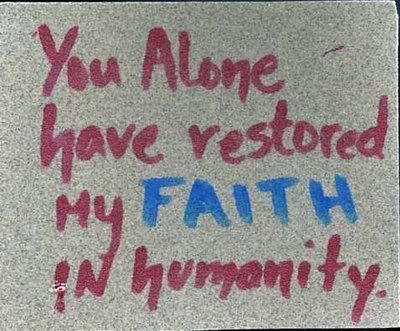 You Alone
have restored
My FAITH
IN humanity.